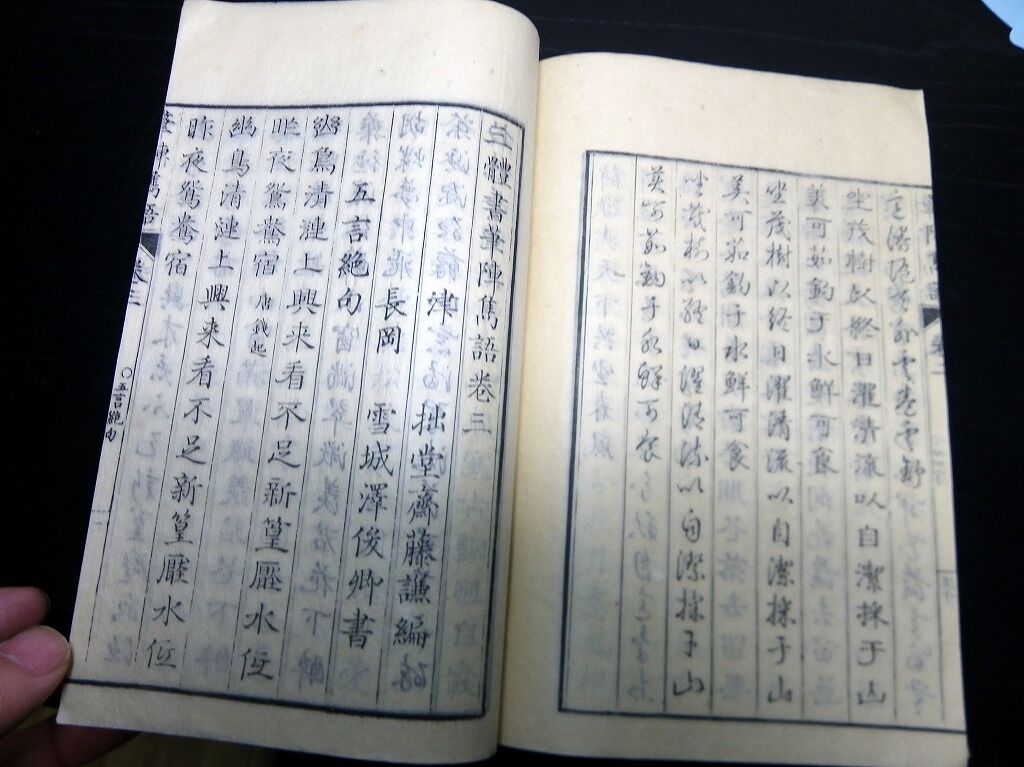 坐茂樹以終日濯清流以自潔採于山
美可茹釣于水鮮可食
坐茂樹以終日濯清流以自潔採于山
美可茹釣于水鮮可食
坐茂樹以終日濯清流以自潔採于山
美可茹釣于水鮮可食
三體書筆陣雋語卷三
津 拙堂齋藤謙編
長岡 雪城澤俊卿書
五言絶句
幽鳥清漣上興来看不足新篁壓水低
昨夜鴛鴦宿 唐錢起
幽鳥清漣上興来看不足新篁壓水低
昨夜鴛鴦宿
筆陣雋語 卷三 ○五言絶句